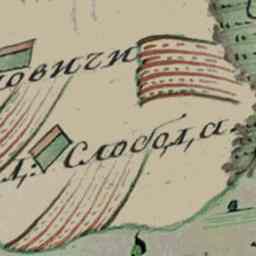 овичи
д: Слобода.